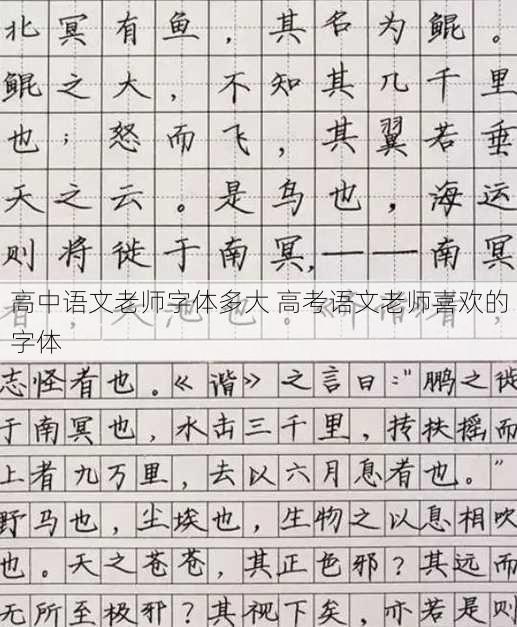 北冥有鱼，其名为鲲。
鲲之大，不知其几千里
也；怒而飞，其翼若垂
天之云。是鸟也，海运
则将徙于南冥，——南冥
者，天池也。《齐谐》者，
高中语文老师字体多大 高考语文老师喜欢的
字体
志怪者也。《谐》之言曰："鹏之徙
于南冥也，水击三千里，抟扶摇而
上者九万里，去以六月息者也。"
野马也，尘埃也，生物之以息相吹
也。天之苍苍，其正色邪？其远而
无所至极邪？其视下矣，亦若是则